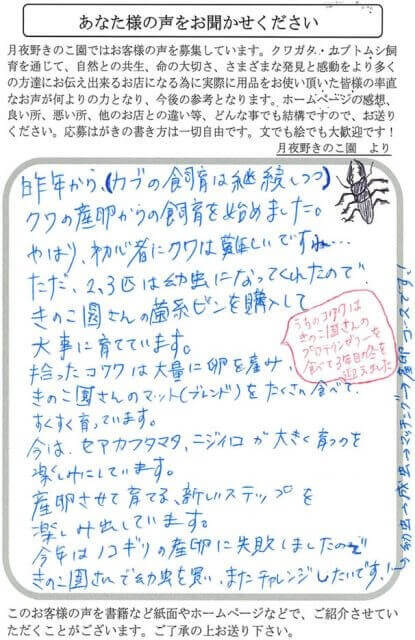 あなた様の声をお聞かせください
月夜野きのこ園ではお客様の声を募集しています。クワガタ、カブトムシ飼
育を通じて、自然との共生、命の大切さ、さまざまな発見と感動をより多く
の方達にお伝え出来るお店になる為に実際に用品をお使い頂いた皆様の率直
なお声が何よりの力となり、今後の参考となります。ホームページの感想、
良い所、悪い所、他のお店との違い等、どんな事でも結構ですので、お送り
ください。応募はがきの書き方は一切自由です。文でも絵でも大歓迎です！
月夜野きのこ園 より
昨年から、(カブの飼育は継続しつつ)
クワの産卵からの飼育を始めました。
やはり、初心者にクワは難しいですね…
ただ、2,3匹は幼虫になってくれたので
きのこ園さんの菌糸ビンを購入して
大事に育てています。
うちのコクワは
きのこ園さんの
プロテインゼリーを
食べて2年目の冬を
迎えました
拾ったコクワは大量に卵を産み、
きのこ園さんのマット(ブレンド)をたくさん食べて、
すくすく育っています。
今は、セアカフタマタ、ニジイロが大きく育つのを
楽しみにしています。
産卵させて育てる、新しいステップを
楽しみ出しています。
今年はノコギリの産卵に失敗しましたので
きのこ園さんで幼虫を買い、またチャレンジしたいです。
幼虫→成虫→マッチング→産卵 コースです!
このお客様の声を書籍など紙面やホームページなどで、ご紹介させてい
ただくことがございます。ご了承の上お送り下さい。